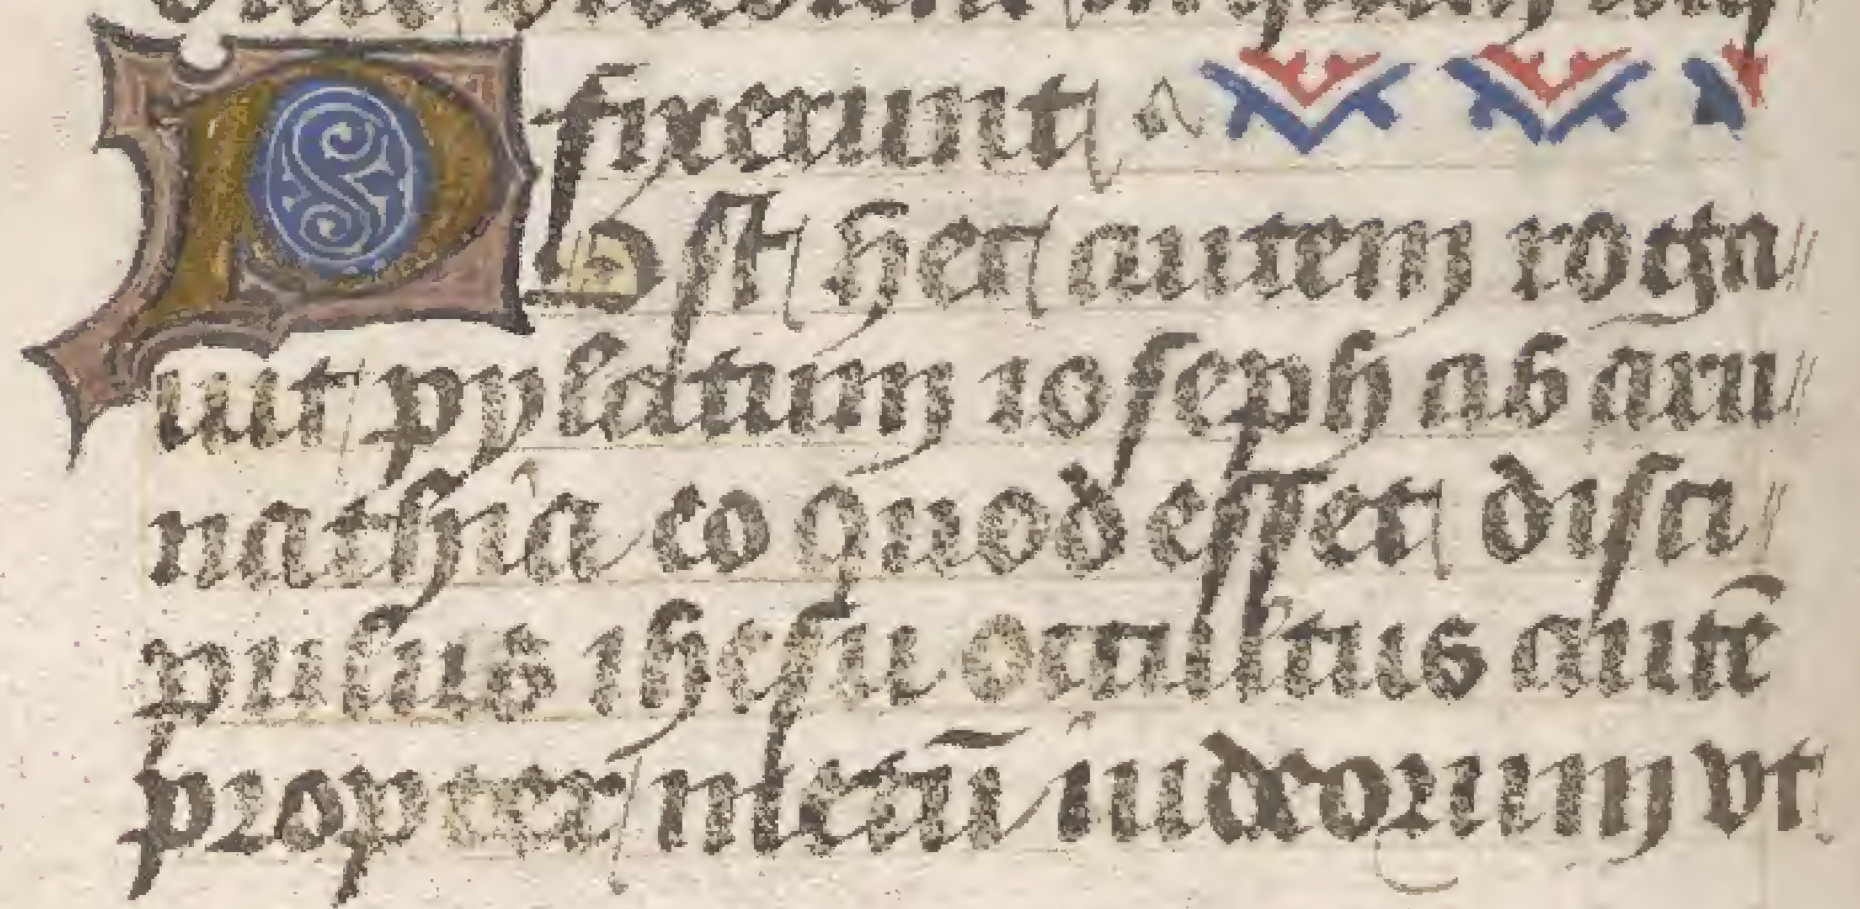 fixerunt
Post hec autem roga
uit pylatum ioseph ab ari
mathia eo quod esset disci
pulus ihesu occultus autē
propter metū iudeorum vt